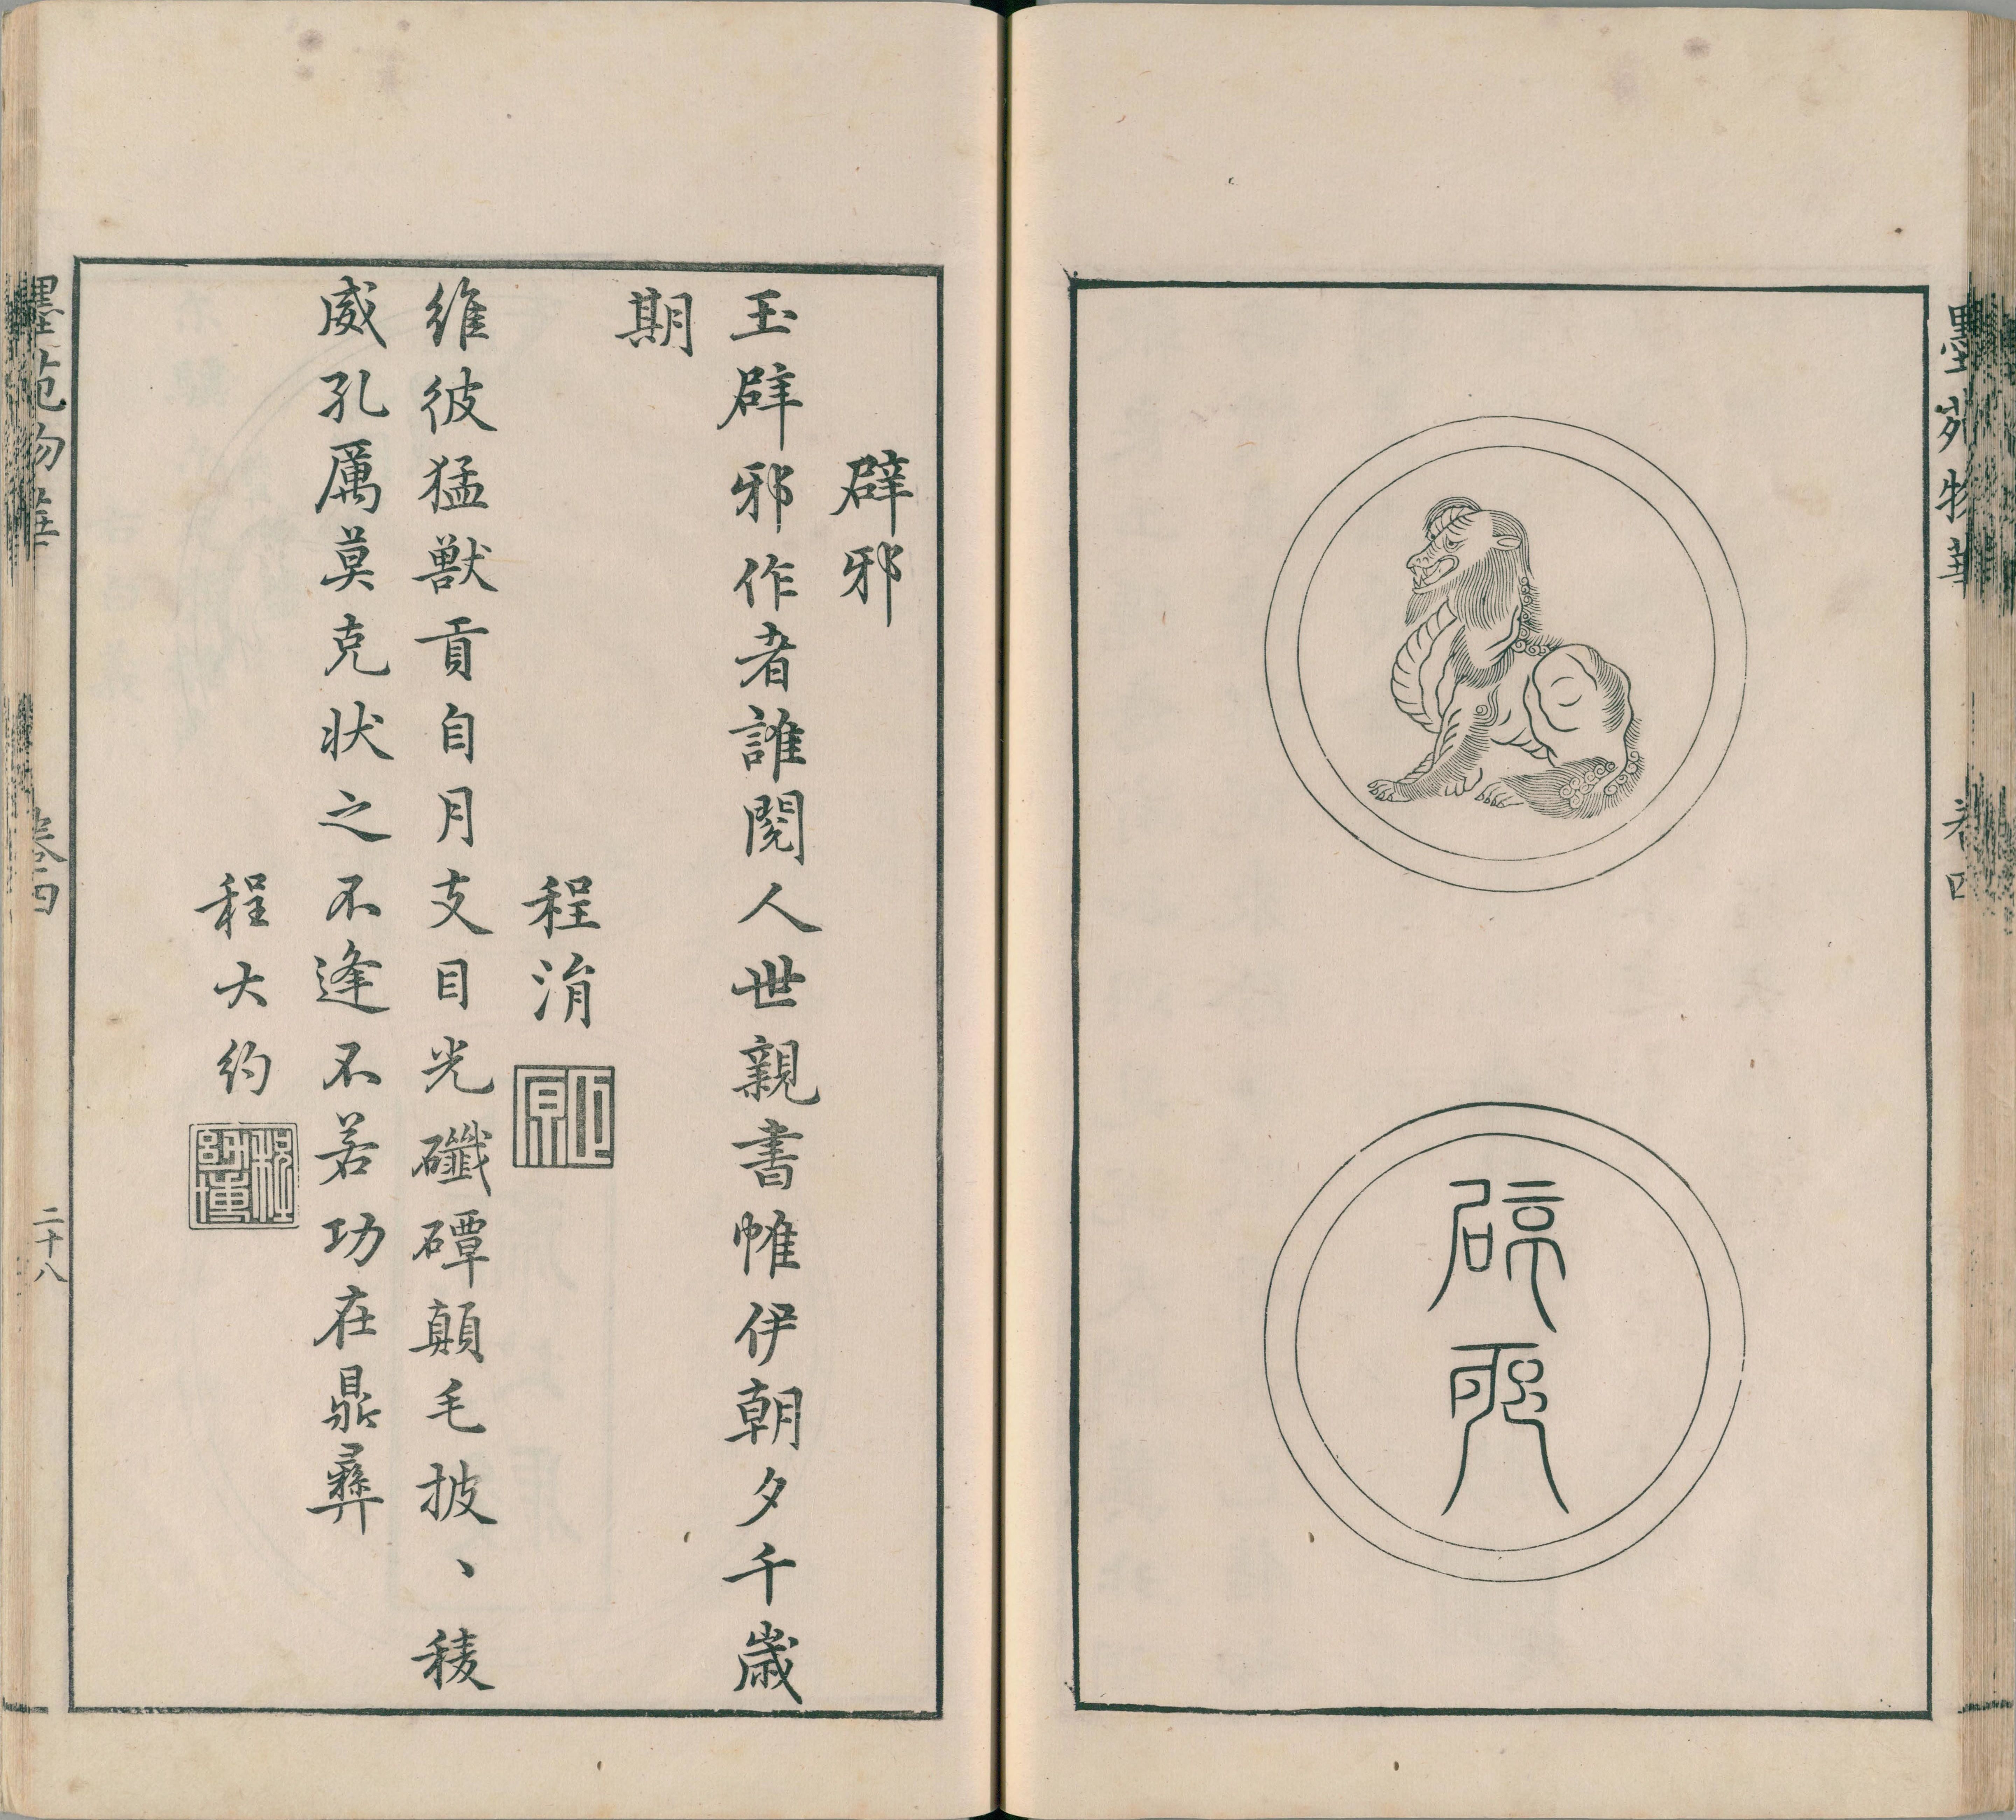 墨苑物華
卷四
辟邪
辟邪
玉辟邪作者誰閱人世親書帷伊朝夕千歲
期
程涓
巨源
維彼猛獸貢自月支目光礥磹顛毛披、稜
威孔厲莫克狀之不逢不若功在鼎彝
程大約
程幼博
墨苑物華
卷四
二十八